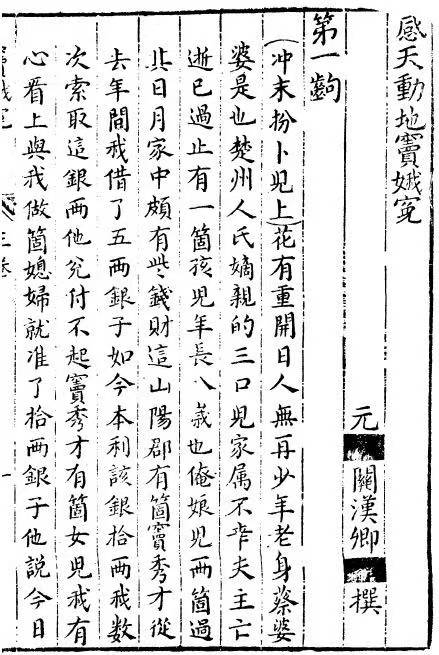 感天動地竇娥寃
元 關漢卿 撰
第一齣
(冲末扮卜兒上)花有重開日人無再少年老身蔡婆
婆是也楚州人氏嫡親的三口兒家属不幸夫主亡
逝已過止有一箇孩兒年長八歲也俺娘兒兩箇過
其日月家中頗有些錢財這山陽郡有箇竇秀才從
去年間我借了五兩銀子如今本利該銀拾兩我數
次索取這銀兩他兌付不起竇秀才有箇女兒我有
心看上與我做箇媳婦就准了拾兩銀子他說今日